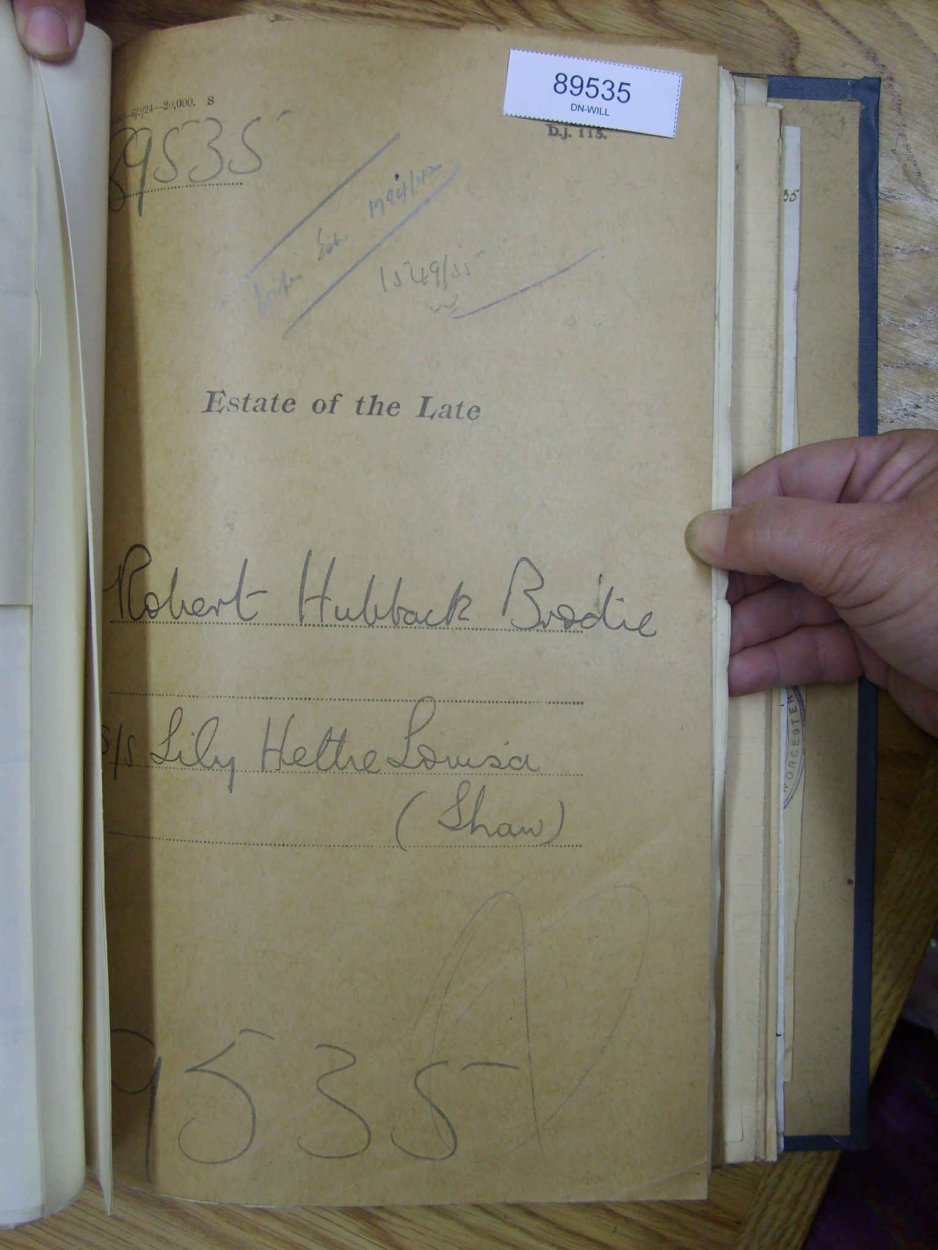 89535
DN-WILL
—6/3/24—20,000. S
D.J. 115.
89535
Est. 1984/42
1549/55
Estate of the Late
Robert Hubback Brodie
s/s Lily Hethe Louisa
(Shaw)
9535
35
ORCESTER